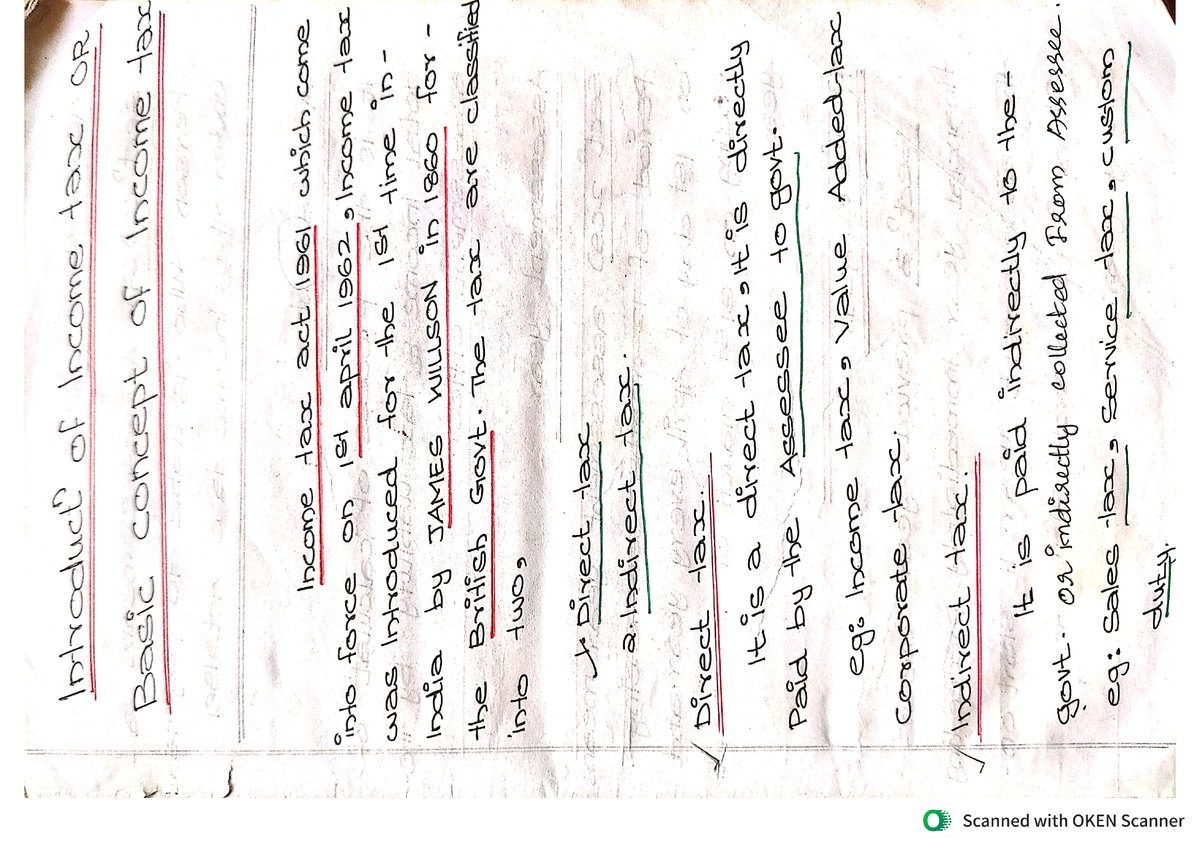 Introduct^n of Income tax OR
Basic concept of Income tax
Income tax act 1961 which come
into force on 1st april 1962, Income tax
was Introduced for the 1st time in-
India by JAMES WILLSON in 1860 for-
the British Govt. The tax are classified
into two,
1. Direct tax
2. Indirect tax.
Direct tax.
It is a direct tax, It is directly
Paid by the Assessee to govt.
eg: Income tax, Value Added-tax
Corporate tax.
Indirect tax.
It is paid indirectly to the-
govt. or indirectly collected From Assessee.
eg: Sales tax, Service tax, custom
duty.
Scanned with OKEN Scanner